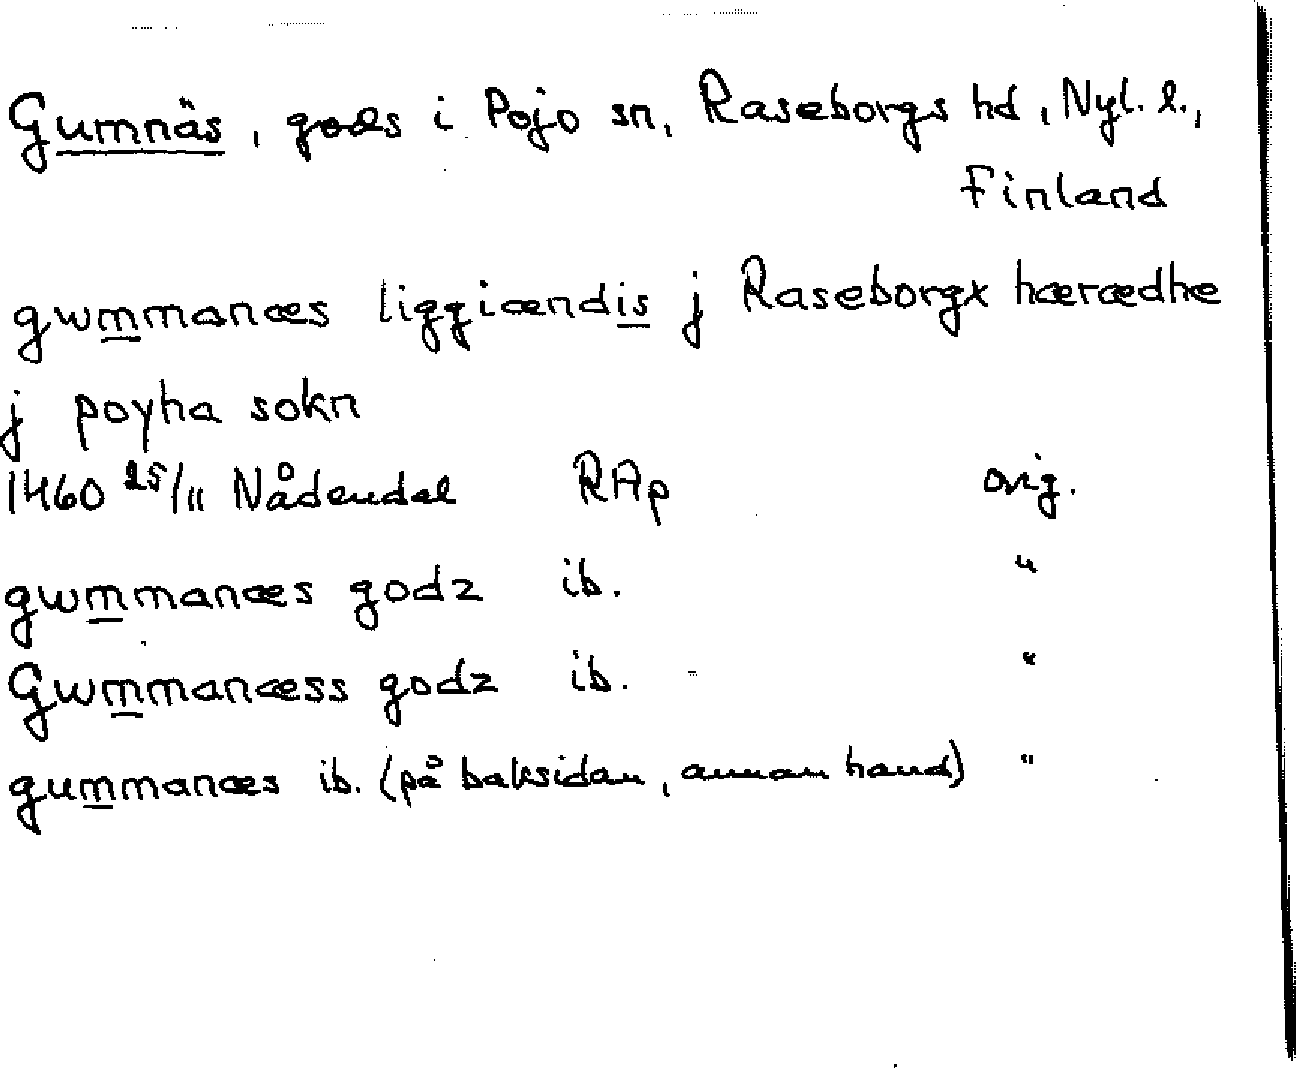 Gumnäs, gods i Pojo sn, Raseborgs hd, Nyl. l.,
Finland
gwmmanæs liggiændis j Raseborgx hærædhe
j poyha sokn
1460 25/11 Nådendal RAp orig.
gwmmanæs godz ib. "
Gwmmanæss godz ib. - "
gummanæs ib. (på baksidan, annan hand) "